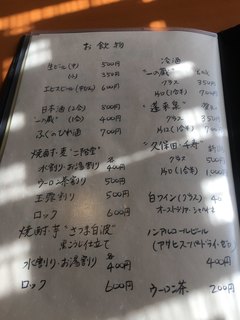 お飲物
生ビール(中) 500円
(小) 350円
エビスビール(中ビン) 600円
日本酒(2合) 500円
"一の蔵"(1合) 400円
ふくのひれ酒 700円
焼酎・麦"二階堂"
水割り・お湯割り 各400円
ウーロン茶割り 500円
玉露割り 500円
ロック 600円
焼酎・芋"さつま白波"
黒こうじ仕立て
水割り・お湯割り 各400円
ロック 600円
冷酒
"一の蔵"
グラス 350円
片口(1合) 700円
"蓬莱泉"
グラス
片口
"久保田 千寿"
グラス 500円
片口(1合)
白ワイン(グラス)
オーストラリア・シャルドネ
ノンアルコールビール
(アサヒスーパードライゼロ)
ウーロン茶 200円